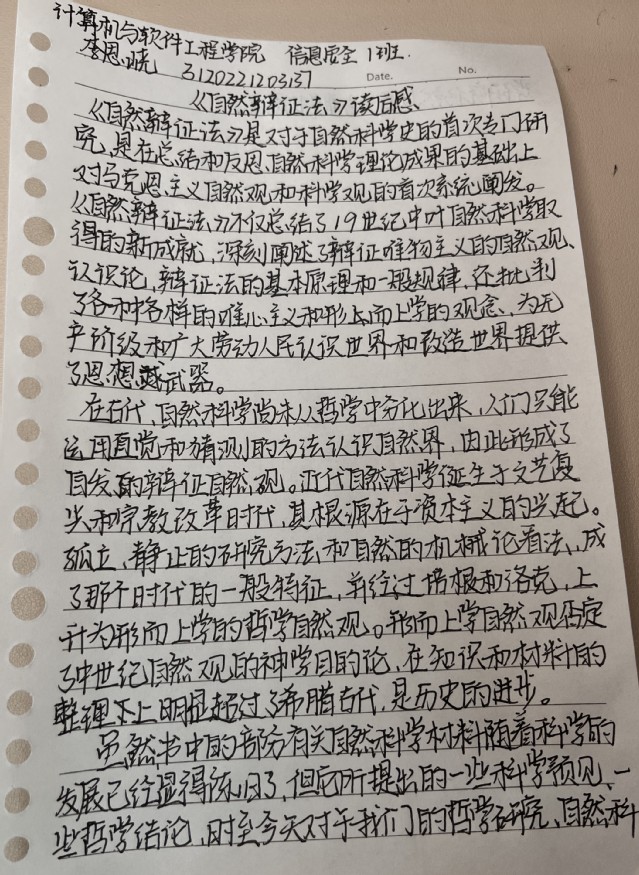 计算机与软件工程学院 信息安全 1班.
李思晓 3120221203137 Date. No.
《自然辩证法》读后感
《自然辩证法》是对于自然科学史的首次专门研
究,是在总结和反思自然科学理论成果的基础上
对马克思主义自然观和科学观的首次系统阐发。
《自然辩证法》不仅总结了19世纪中叶自然科学取
得的新成就,深刻阐述了辩证唯物主义的自然观、
认识论,辩证法的基本原理和一般规律,还批判
了各种各样的唯心主义和形而上学的观念,为无
产阶级和广大劳动人民认识世界和改造世界提供
了思想武器。
在古代,自然科学尚未从哲学中分化出来,人们只能
运用直觉和猜测的方法认识自然界,因此形成了
自发的辩证自然观。近代自然科学诞生于文艺复
兴和宗教改革时代,其根源在于资本主义的兴起。
孤立、静止的研究方法和自然的机械论看法,成
了那个时代的一般特征,并经过培根和洛克,上
升为形而上学的哲学自然观。形而上学自然观否定
了中世纪自然观的神学目的论,在知识和材料的
整理下上明显超过了希腊古代,是历史的进步。
虽然书中的部分有关自然科学材料随着科学的
发展已经显得陈旧了,但它所提出的一些科学预见、一
些哲学结论,时至今天对于我们的哲学研究、自然科